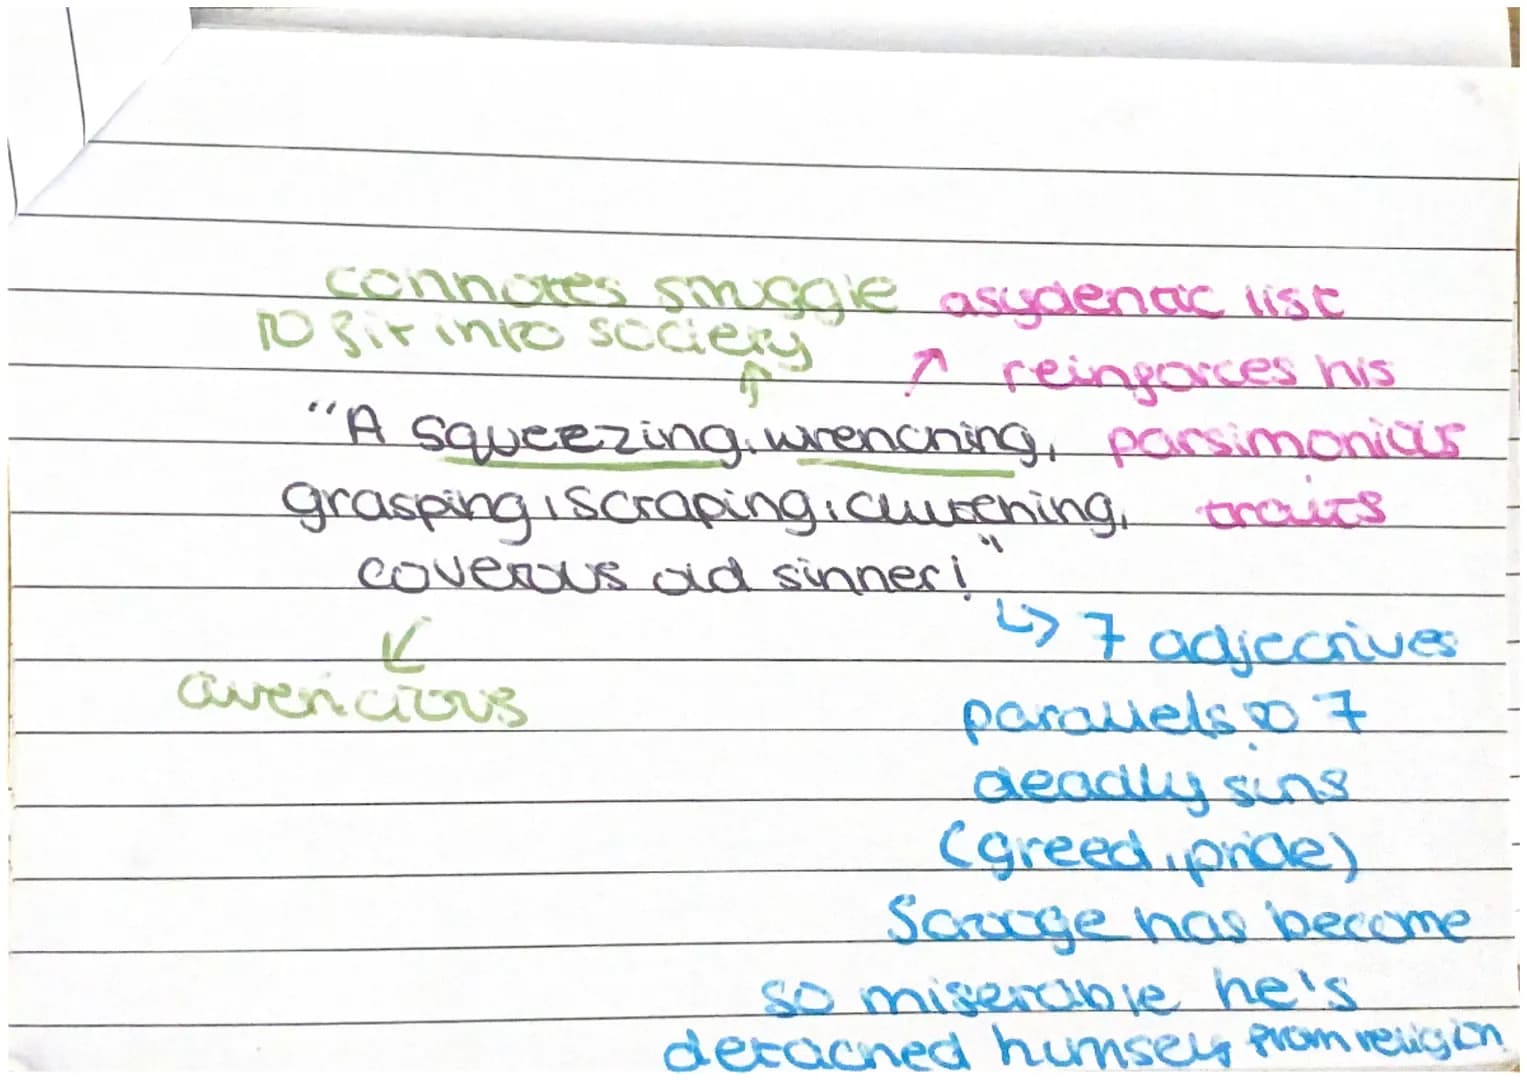 connotes struggle
to fit into society
asydentic list
reinforces his
parsimonious
traits
"A squeezing, wrenching,
grasping, scraping, clutching,
covetous old sinner!"
avericious
↳ 7 adjectives
parallels to 7
deadly sins
(greed, pride)
Scrooge has become
so miserable he's
detached himself from religion